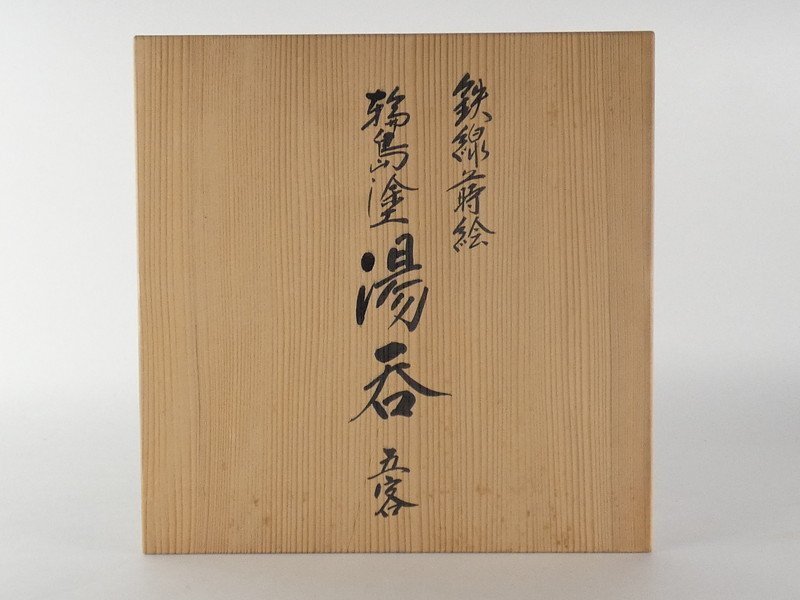 鉄線蒔絵
輪島塗湯呑五客